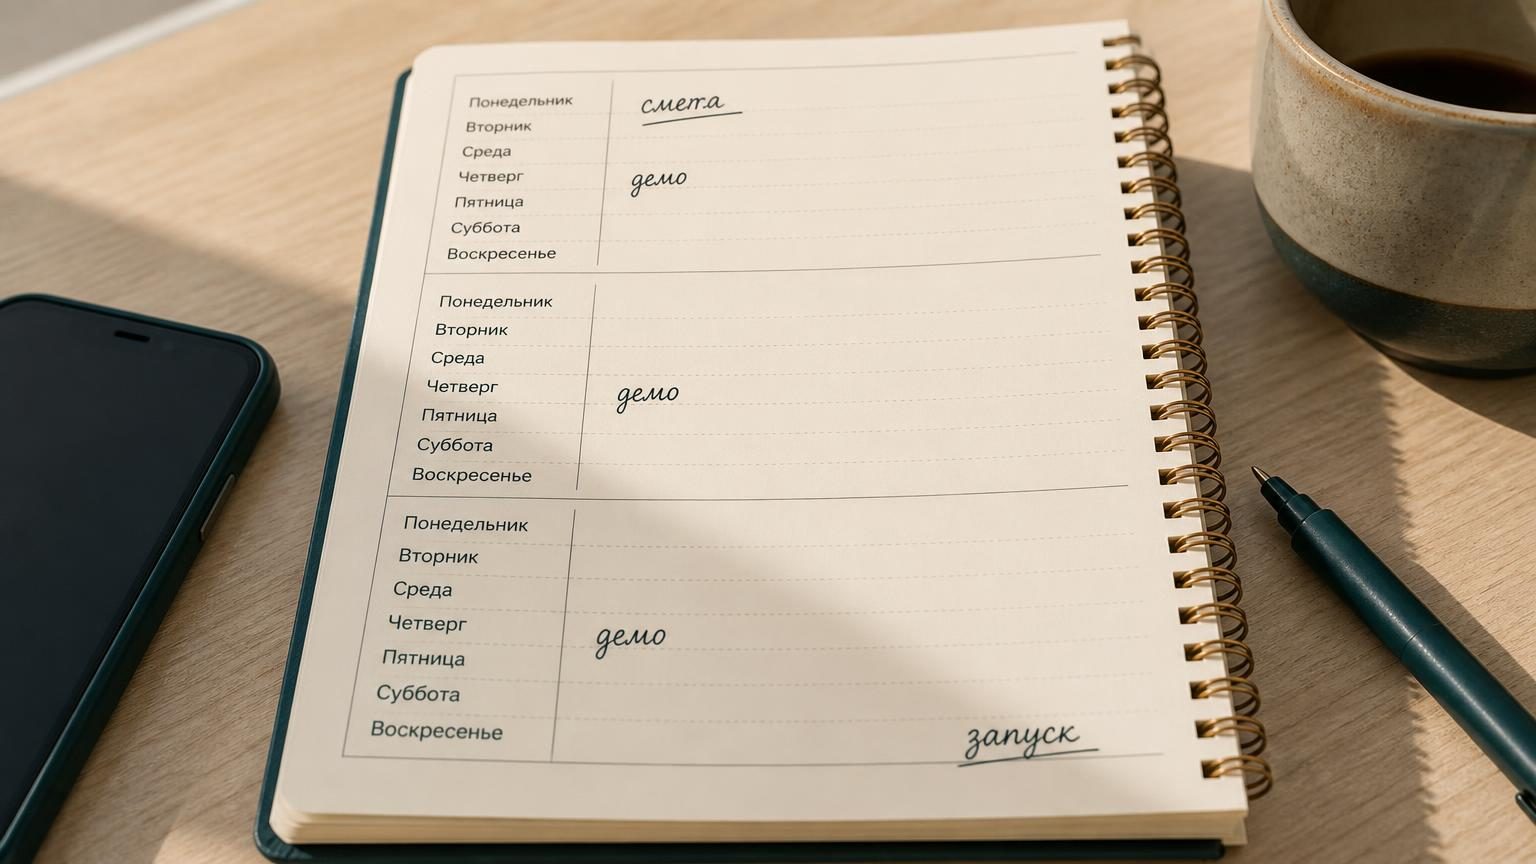 Понедельник смета
Вторник
Среда
Четверг демо
Пятница
Суббота
Воскресенье
Понедельник
Вторник
Среда
Четверг демо
Пятница
Суббота
Воскресенье
Понедельник
Вторник
Среда
Четверг демо
Пятница
Суббота
Воскресенье запуск